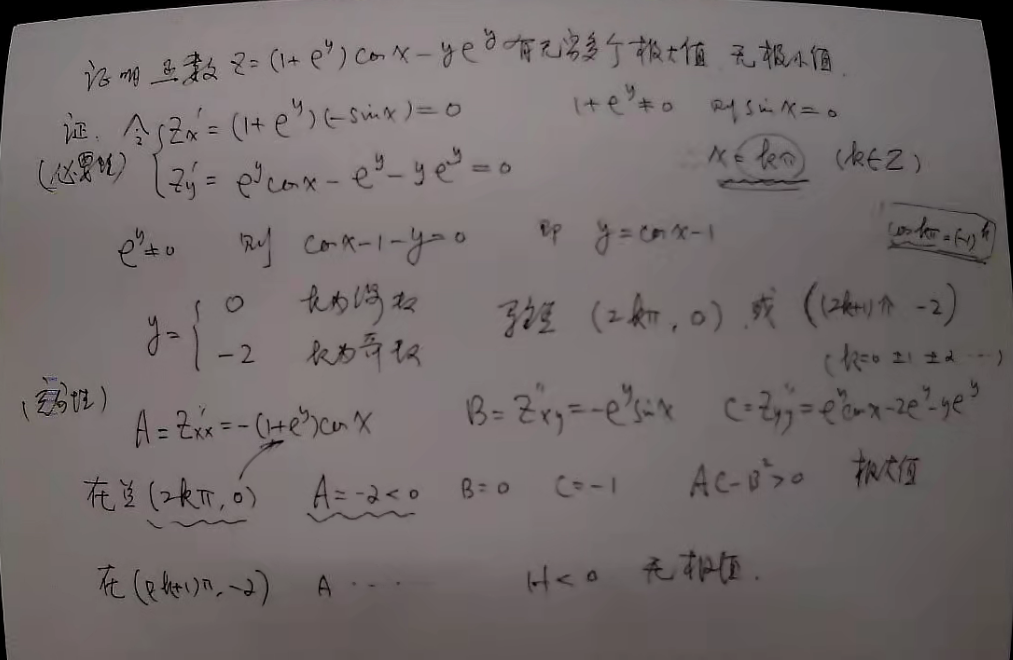 证明函数 z=(1+e^y)cosx-ye^y 有无穷多个极大值 无极小值.
证. 令 { Zx'=(1+e^y)(-sinx)=0 1+e^y≠0 则 sinx=0
(必要性) Zy'=e^ycosx-e^y-ye^y=0 x=kπ (k∈Z)
e^y≠0 则 cosx-1-y=0 即 y=cosx-1 coskπ=(-1)^k
y={ 0 k为偶数 驻点 (2kπ, 0) 或 ((2k+1)π -2)
-2 k为奇数 (k=0 ±1 ±2 …)
(充分性)
A=Z''xx=-(1+e^y)cosx B=Z''xy=-e^ysinx C=Z''yy=e^ycosx-2e^y-ye^y
在点(2kπ,0) A=-2<0 B=0 C=-1 AC-B²>0 极大值
在((2k+1)π,-2) A ···· H<0 无极值.